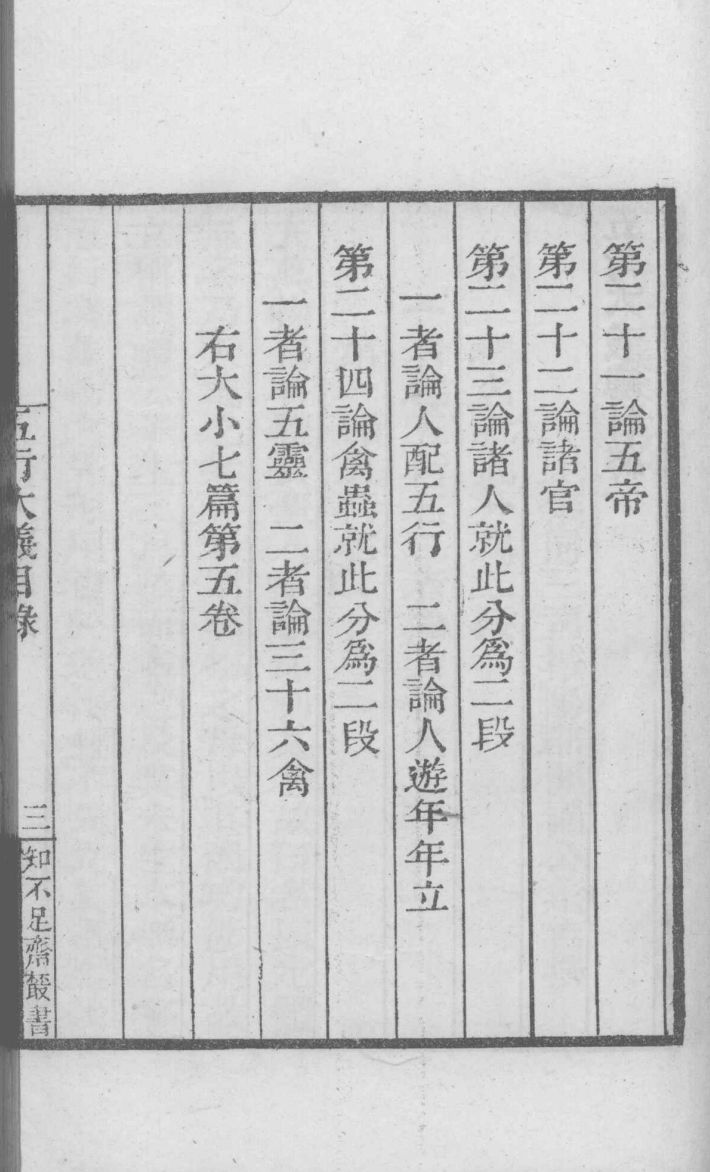 第二十一論五帝
第二十二論諸官
第二十三論諸人就此分爲二段
一者論人配五行　二者論人遊年年立
第二十四論禽蟲就此分爲二段
一者論五靈　二者論三十六禽
右大小七篇第五卷
五行大義目錄　三　知不足齋叢書